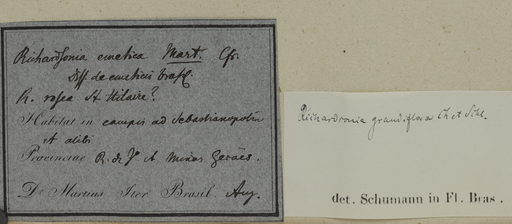 Richardsonia emetica Mart. Cfr.
Diss. de emeticis brasil.
R. rosea St Hilaire?
Habitat in campis ad Sebastianopolin
et alibi
Provinciae R. de J. et Minas Geraës.
Dr Martius Iter Brasil. Aug.
Richardsonia grandiflora Ch et Schl.
det. Schumann in Fl. Bras.